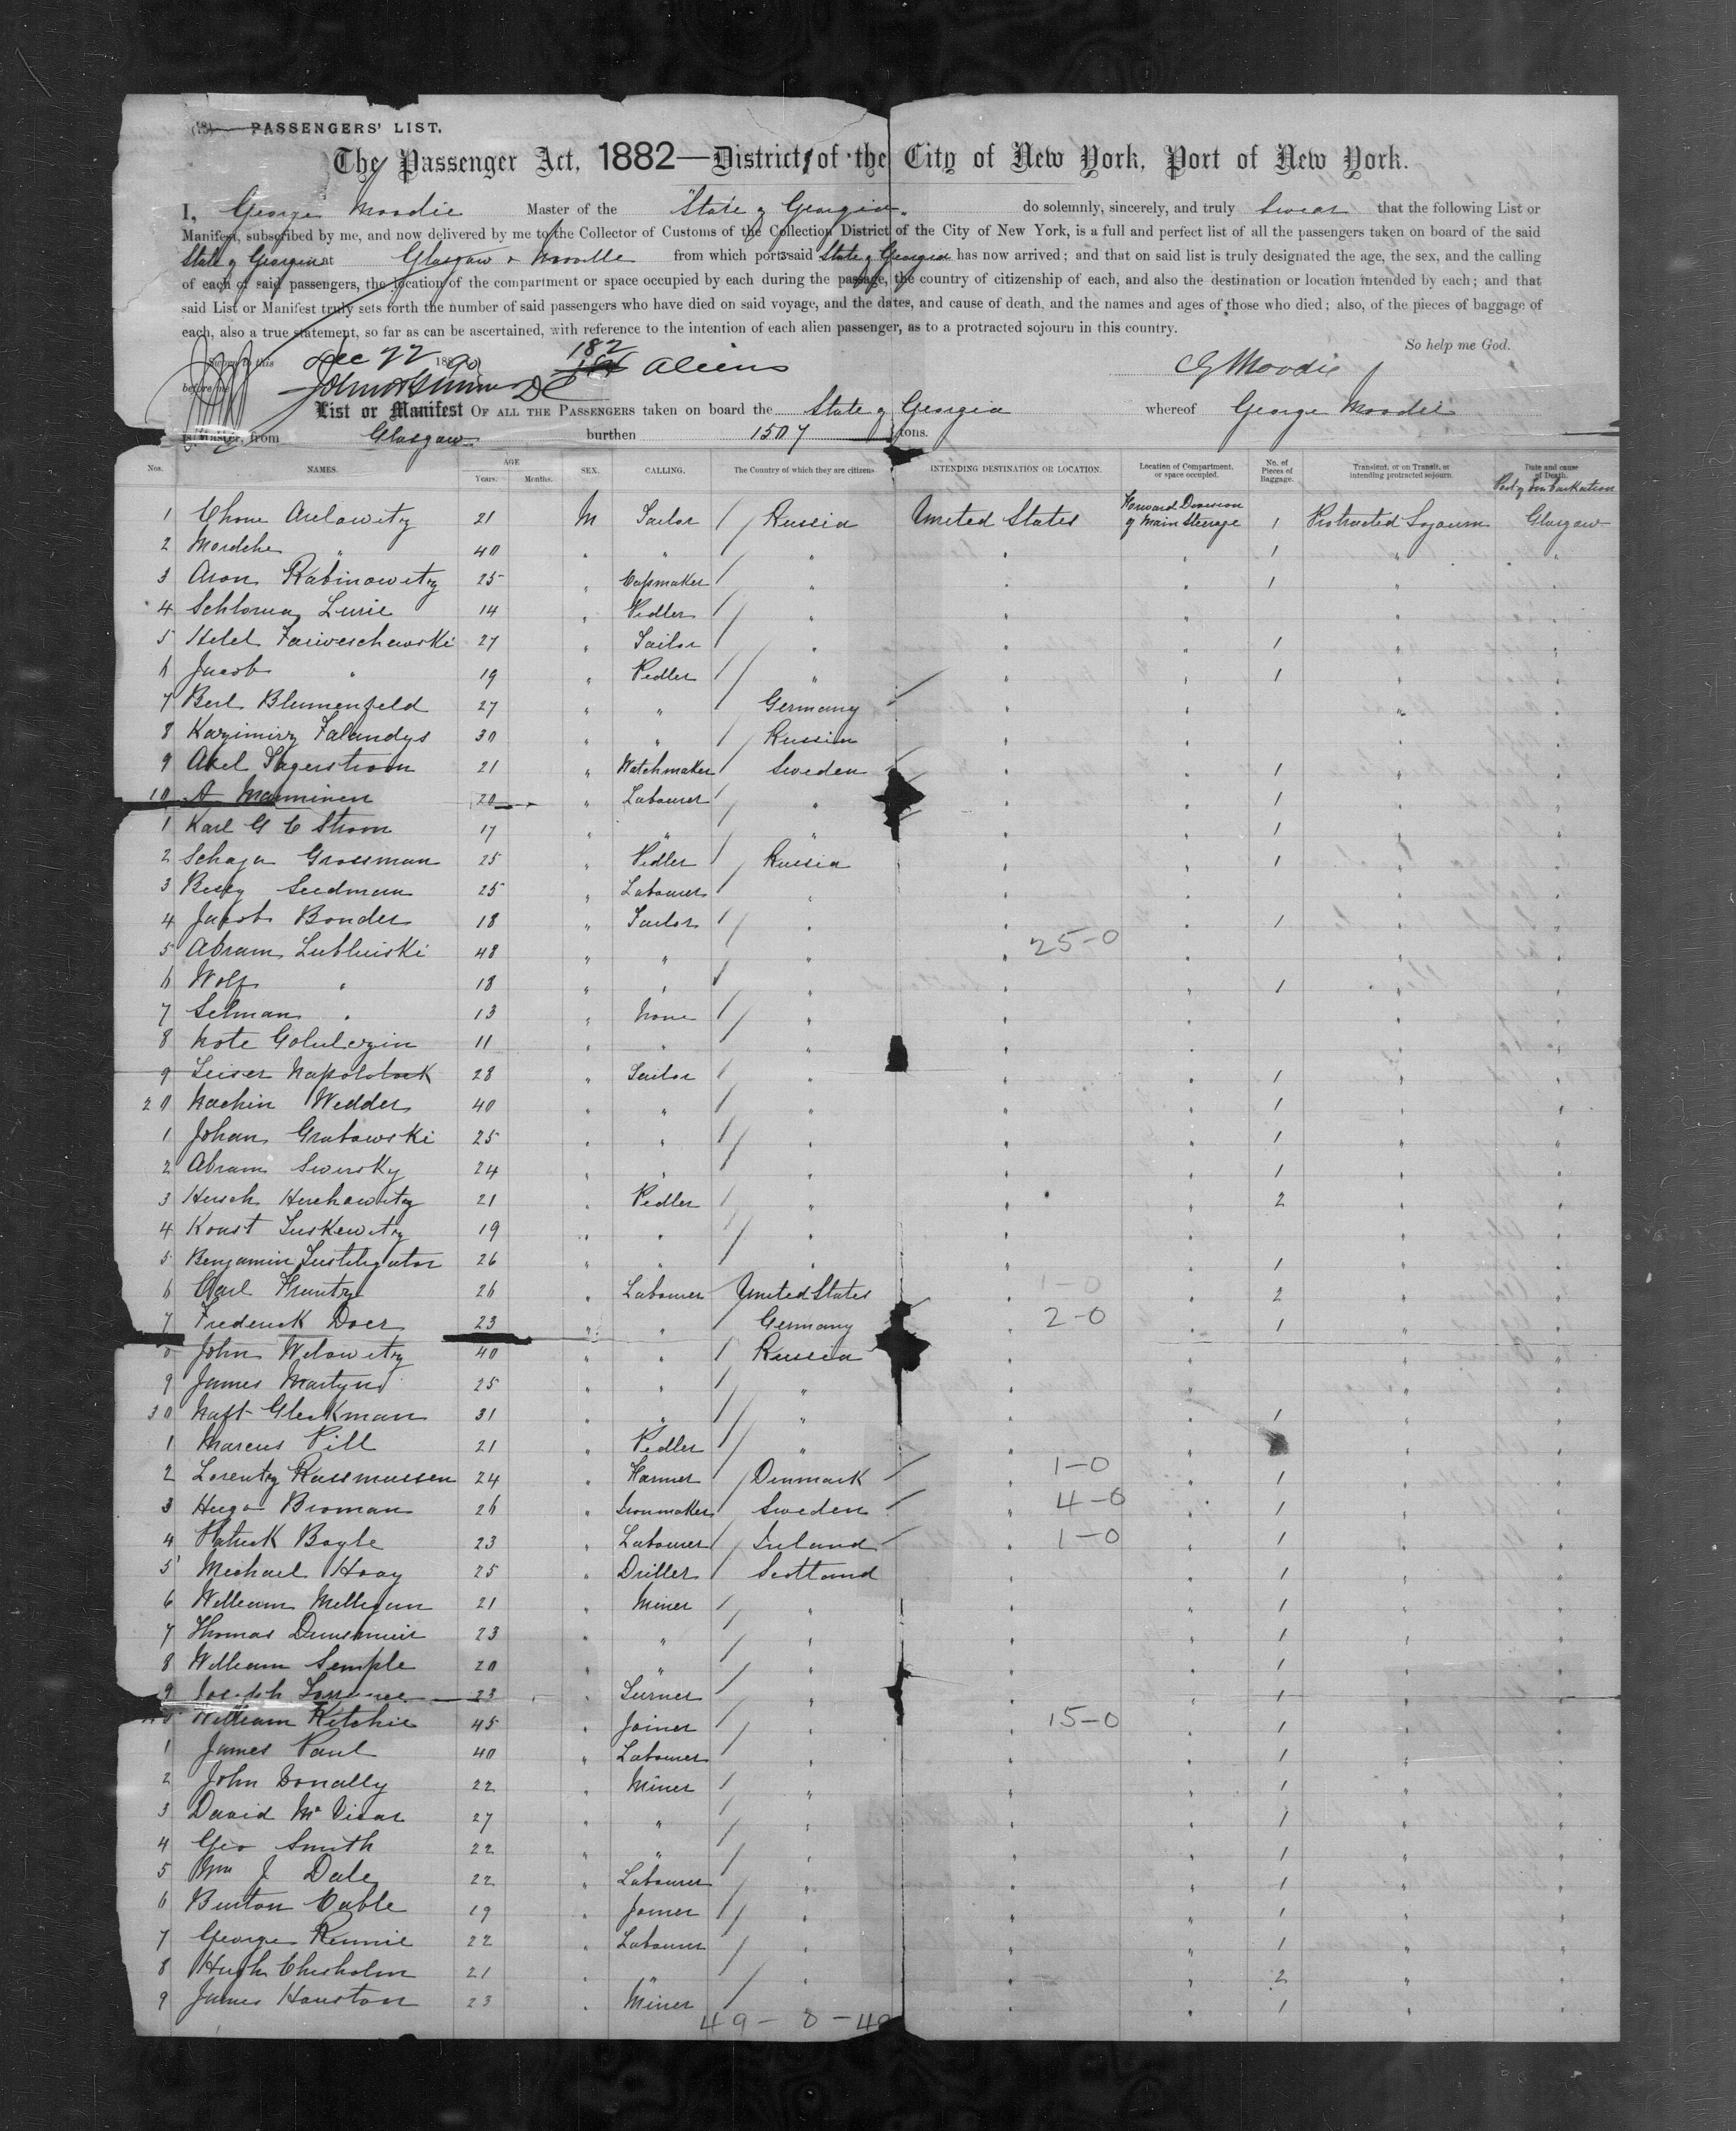 (18) PASSENGERS' LIST.
The Passenger Act, 1882—District of the City of New York, Port of New York.
I, George Moodie Master of the "State of Georgia" do solemnly, sincerely, and truly Swear that the following List or
Manifest, subscribed by me, and now delivered by me to the Collector of Customs of the Collection District of the City of New York, is a full and perfect list of all the passengers taken on board of the said
State of Georgia at Glasgow & Moville from which port said State of Georgia has now arrived; and that on said list is truly designated the age, the sex, and the calling
of each of said passengers, the location of the compartment or space occupied by each during the passage, the country of citizenship of each, and also the destination or location intended by each; and that
said List or Manifest truly sets forth the number of said passengers who have died on said voyage, and the dates, and cause of death, and the names and ages of those who died; also, of the pieces of baggage of
each, also a true statement, so far as can be ascertained, with reference to the intention of each alien passenger, as to a protracted sojourn in this country.
So help me God.
Sworn to this Dec 22 1890 182 Aliens G Moodie
before me
List or Manifest OF ALL THE PASSENGERS taken on board the State of Georgia whereof George Moodie
is Master, from Glasgow burthen 1507 tons.
Nos. NAMES. AGE Years. Months. SEX. CALLING. The Country of which they are citizens. INTENDING DESTINATION OR LOCATION. Location of Compartment, or space occupied. No. of Pieces of Baggage. Transient, or on Transit, or intending protracted sojourn. Date and cause of Death.
Port of Embarkation
1 Chone Arelowitz 21 M Tailor / Russia United States Forward Division of Main Steerage 1 Protracted Sojourn Glasgow
2 Mordche " 40 " " / " " " 1 " "
3 Aron Rabinowitz 25 " Capmaker / " " " 1 " "
4 Schloma Lurie 14 " Pedler / " " " " "
5 Helel 27 " Tailor / " " " 1 " "
6 Jacob " 19 " Pedler / " " " 1 " "
7 Berl Blumenfeld 27 " " / Germany " " " "
8 Kazimirz Falandys 30 " " / Russia " " " "
9 Axel Sagerstrom 21 " Watchmaker / Sweden " " 1 " "
10 A Manninen 20 " Labourer / " " " 1 " "
1 Karl G C Strom 17 " " / " " " 1 " "
2 Schaja Grossman 25 " Pedler / Russia " " 1 " "
3 Seedman 25 " Labourer / " " " " "
4 Jacob Bonder 18 " Tailor / " " " 1 " "
5 Abram Lublinski 48 " " " " 25-0 " " "
6 Wolf " 18 " " / " " " 1 " "
7 Selman " 13 " None / " " " " "
8 Note 11 " " " " " " "
9 Leiser Napolobock 28 " Tailor / " " " 1 " "
20 Nachin Wedder 40 " " / " " " 1 " "
1 Johan Grabowski 25 " " / " " " 1 " "
2 Abram Swersky 24 " " / " " " 1 " "
3 Hersch Herchowitz 21 " Pedler / " " " 2 " "
4 Konst Luskewitz 19 " " / " " " " "
5 Benjamin 26 " " " " " 1 " "
6 Carl Frantz 26 " Labourer United States " 1-0 " 2 " "
7 Frederick Doer 23 " " / Germany " 2-0 " 1 " "
8 John Welowitz 40 " " / Russia " " " "
9 James Martyns 25 " " / " " " " "
30 Naft Gleckman 31 " " / " " " 1 " "
1 Marcus Pill 21 " Pedler / " " " " "
2 Lorentz Rassmussen 24 " Farmer / Denmark " 1-0 " 1 " "
3 Hugo Broman 26 " Ironmaker / Sweden " 4-0 " 1 " "
4 Patrick Boyle 23 " Labourer / Ireland " 1-0 " 1 " "
5 Michael Hoay 25 " Driller / Scotland " " 1 " "
6 William Milligan 21 " Miner / " " " 1 " "
7 Thomas Dunsmuir 23 " " / " " " 1 " "
8 William Semple 20 " " / " " " 1 " "
9 Joseph Lorrance 23 " Turner / " " " 1 " "
40 William Ritchie 45 " Joiner / " " 15-0 " 1 " "
1 James Paul 40 " Labourer / " " " 1 " "
2 John Donally 22 " Miner / " " " 1 " "
3 David McVicar 27 " " / " " " 1 " "
4 Geo Smith 22 " " / " " " 1 " "
5 Wm J Dale 22 " Labourer / " " " 1 " "
6 Burton Cable 19 " Joiner / " " " 1 " "
7 George Rennie 22 " Labourer / " " " 1 " "
8 Hugh Chisholm 21 " " / " " " 2 " "
9 James Houston 23 " Miner / " " " 1 " "
49-0-49